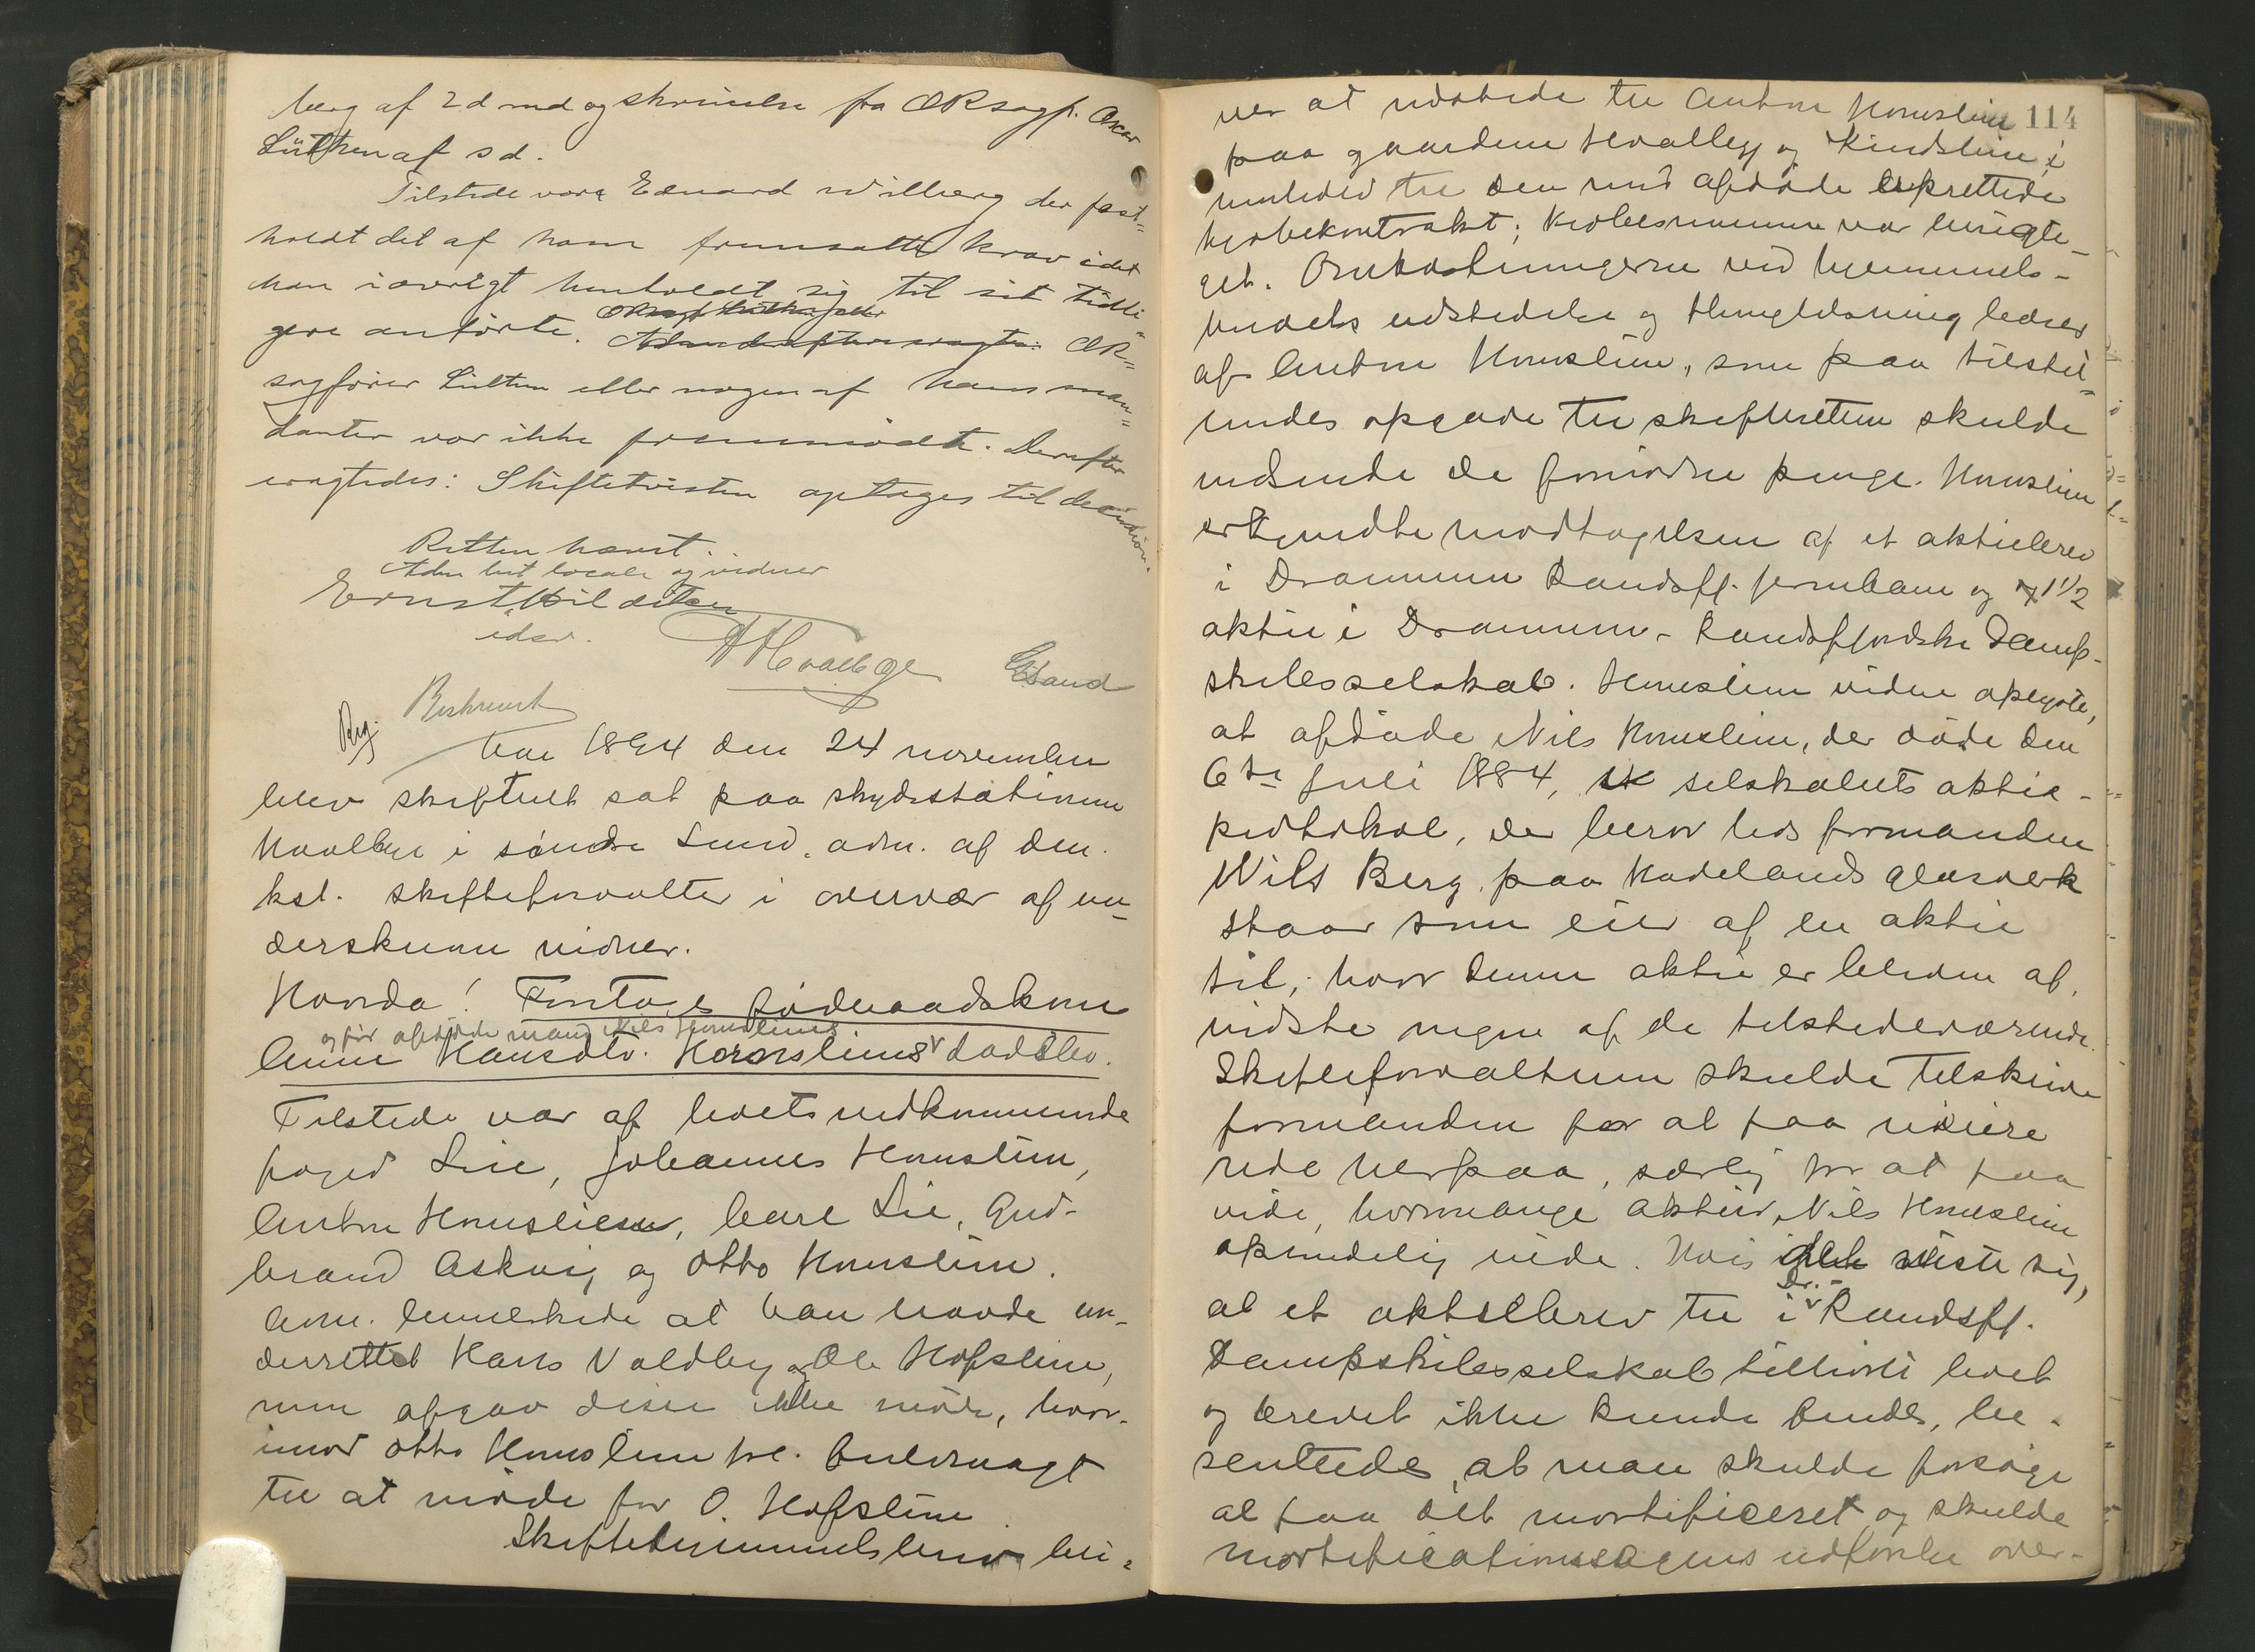 berg af 2d md og skrivelse fra ORsagf. Oscar
Lütken af s d.
Tilstede vare Edvard Wilberg der fast-
holdt det af ham fremsatte krav idet
han iøvrigt henholdt sig til sit tidli-
gere anførte. OR-
sagfører Lütken eller nogen af hans man-
danter var ikke fremmødt. Derefter
eragtedes: Skiftetvisten optages til decision.
Retten hævet.
Adm lest locale og vidner
Ernst Hilditsen
edsv. H Hvalbye E Sand
Beskrevet
Reg.
Aar 1894 den 24 november
blev skifteret sat paa skydsstationen
Hvalbye i søndre Lund, adm. af den
kst. skifteforvalter i overvær af un-
derskrevne vidner.
Hvorda! Foretoges føderaadskone
og før afdøde mand Nils Homsliens
Anne Hansdtr. Hornsliens dødsbo.
Tilstede var af boets vedkommende
foged Lie, Johannes Hornslien,
Anton Hornslien, Carl Lie, Gud-
brand Askvig og Otto Hornslien.
Anm. bemerkede at han havde un-
derrettet Hans Valdby og Ole Hofslien,
men afgav disse ikke møde, hvor-
imod Otto Hornslien frl. fuldmagt
til at møde for O. Hofslien.
Skiftehjemmelsbrev bli-
114
ver at udstede til Anton Hornslien
paa gaardene Hvalbye og Kindslien i
henhold til den med afdøde oprettede
kjøbekontrakt; kjøbesummen var berigti-
get. Omkostningerne ved hjemmels-
brevets udstedelse og thinglæsning bæres
af Anton Hornslien, som paa tilstil-
lendes opgave til skifteretten skulde
indsende de fornødne penge. Hornslien
erkjendte modtagelsen af et aktiebrev
i Drammen Randsfj. jernbane og 1 1/2
aktie i Drammen-Randsfjordske Damp-
skibsselskab. Hornslien videre oplyste,
at afdøde Nils Hornslien, der døde den
6te juli 1884, i selskabets aktie-
protokol, der beror hos formanden
Nils Berg paa Hadelands glasverk
staar som eier af en aktie
til; hvor denne aktie er bleven af,
vidste ingen af de tilstedeværende.
Skifteforvalteren skulde tilskrive
formanden for at faa nøiere
rede herpaa, særlig for at faa
vide, hvormange aktier Nils Hornslien
oprindelig eiede. Hvis det viste sig,
at et aktiebrev til i Dr.- Randsfj.
Dampskibsselskab tilhørte boet
og brevet ikke kunde findes, be-
sluttedes, at man skulde forsøge
at faa det mortificeret og skulde
mortificationssagens udførelse over-